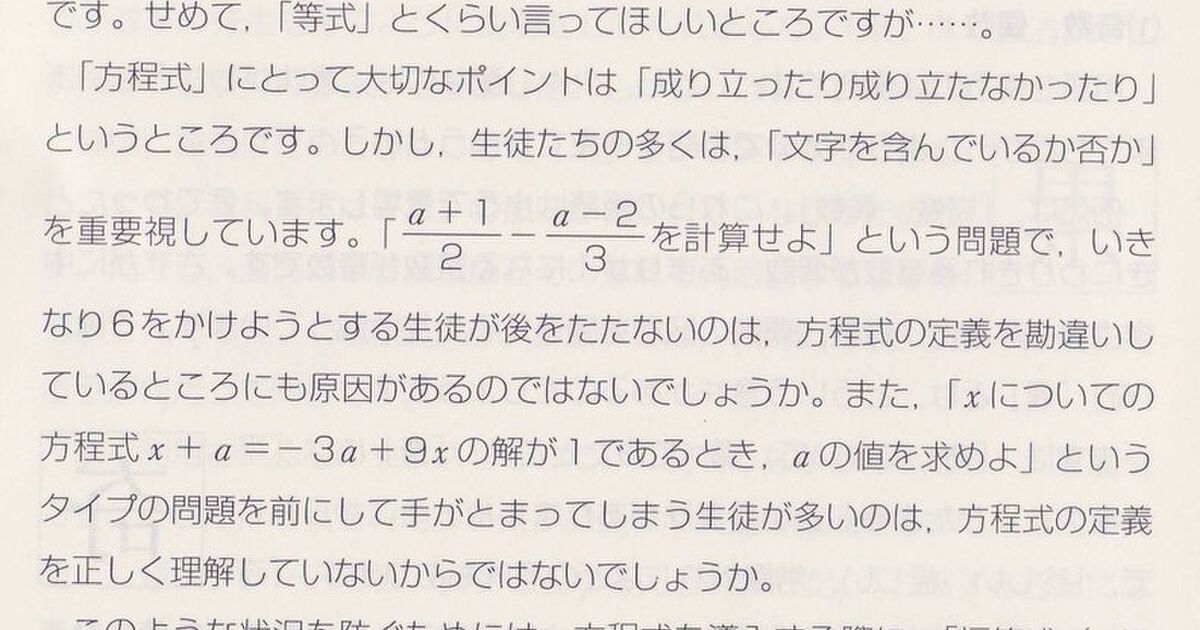 です。せめて,「等式」とくらい言ってほしいところですが……。
「方程式」にとって大切なポイントは「成り立ったり成り立たなかったり」
というところです。しかし,生徒たちの多くは,「文字を含んでいるか否か」
を重要視しています。「(a+1)/2 − (a−2)/3 を計算せよ」という問題で,いき
なり6をかけようとする生徒が後をたたないのは,方程式の定義を勘違いし
ているところにも原因があるのではないでしょうか。また,「xについての
方程式 x + a = − 3a + 9x の解が1であるとき,aの値を求めよ」という
タイプの問題を前にして手がとまってしまう生徒が多いのは,方程式の定義
を正しく理解していないからではないでしょうか。
このような状況を防ぐためには,方程式を導入する際に,「